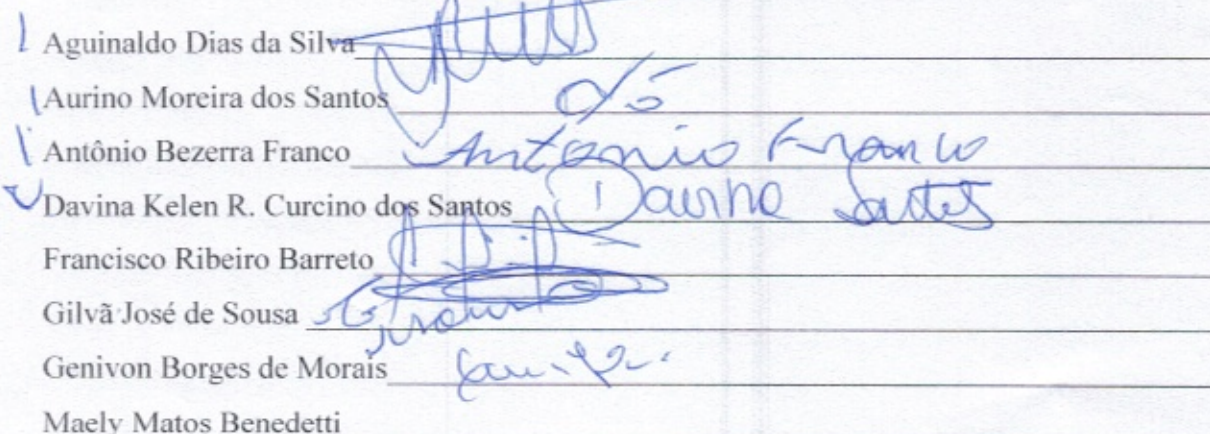 Aguinaldo Dias da Silva
Aurino Moreira dos Santos
Antônio Bezerra Franco Antonio Franco
Davina Kelen R. Curcino dos Santos Davina Santos
Francisco Ribeiro Barreto
Gilvã José de Sousa
Genivon Borges de Morais
Maely Matos Benedetti